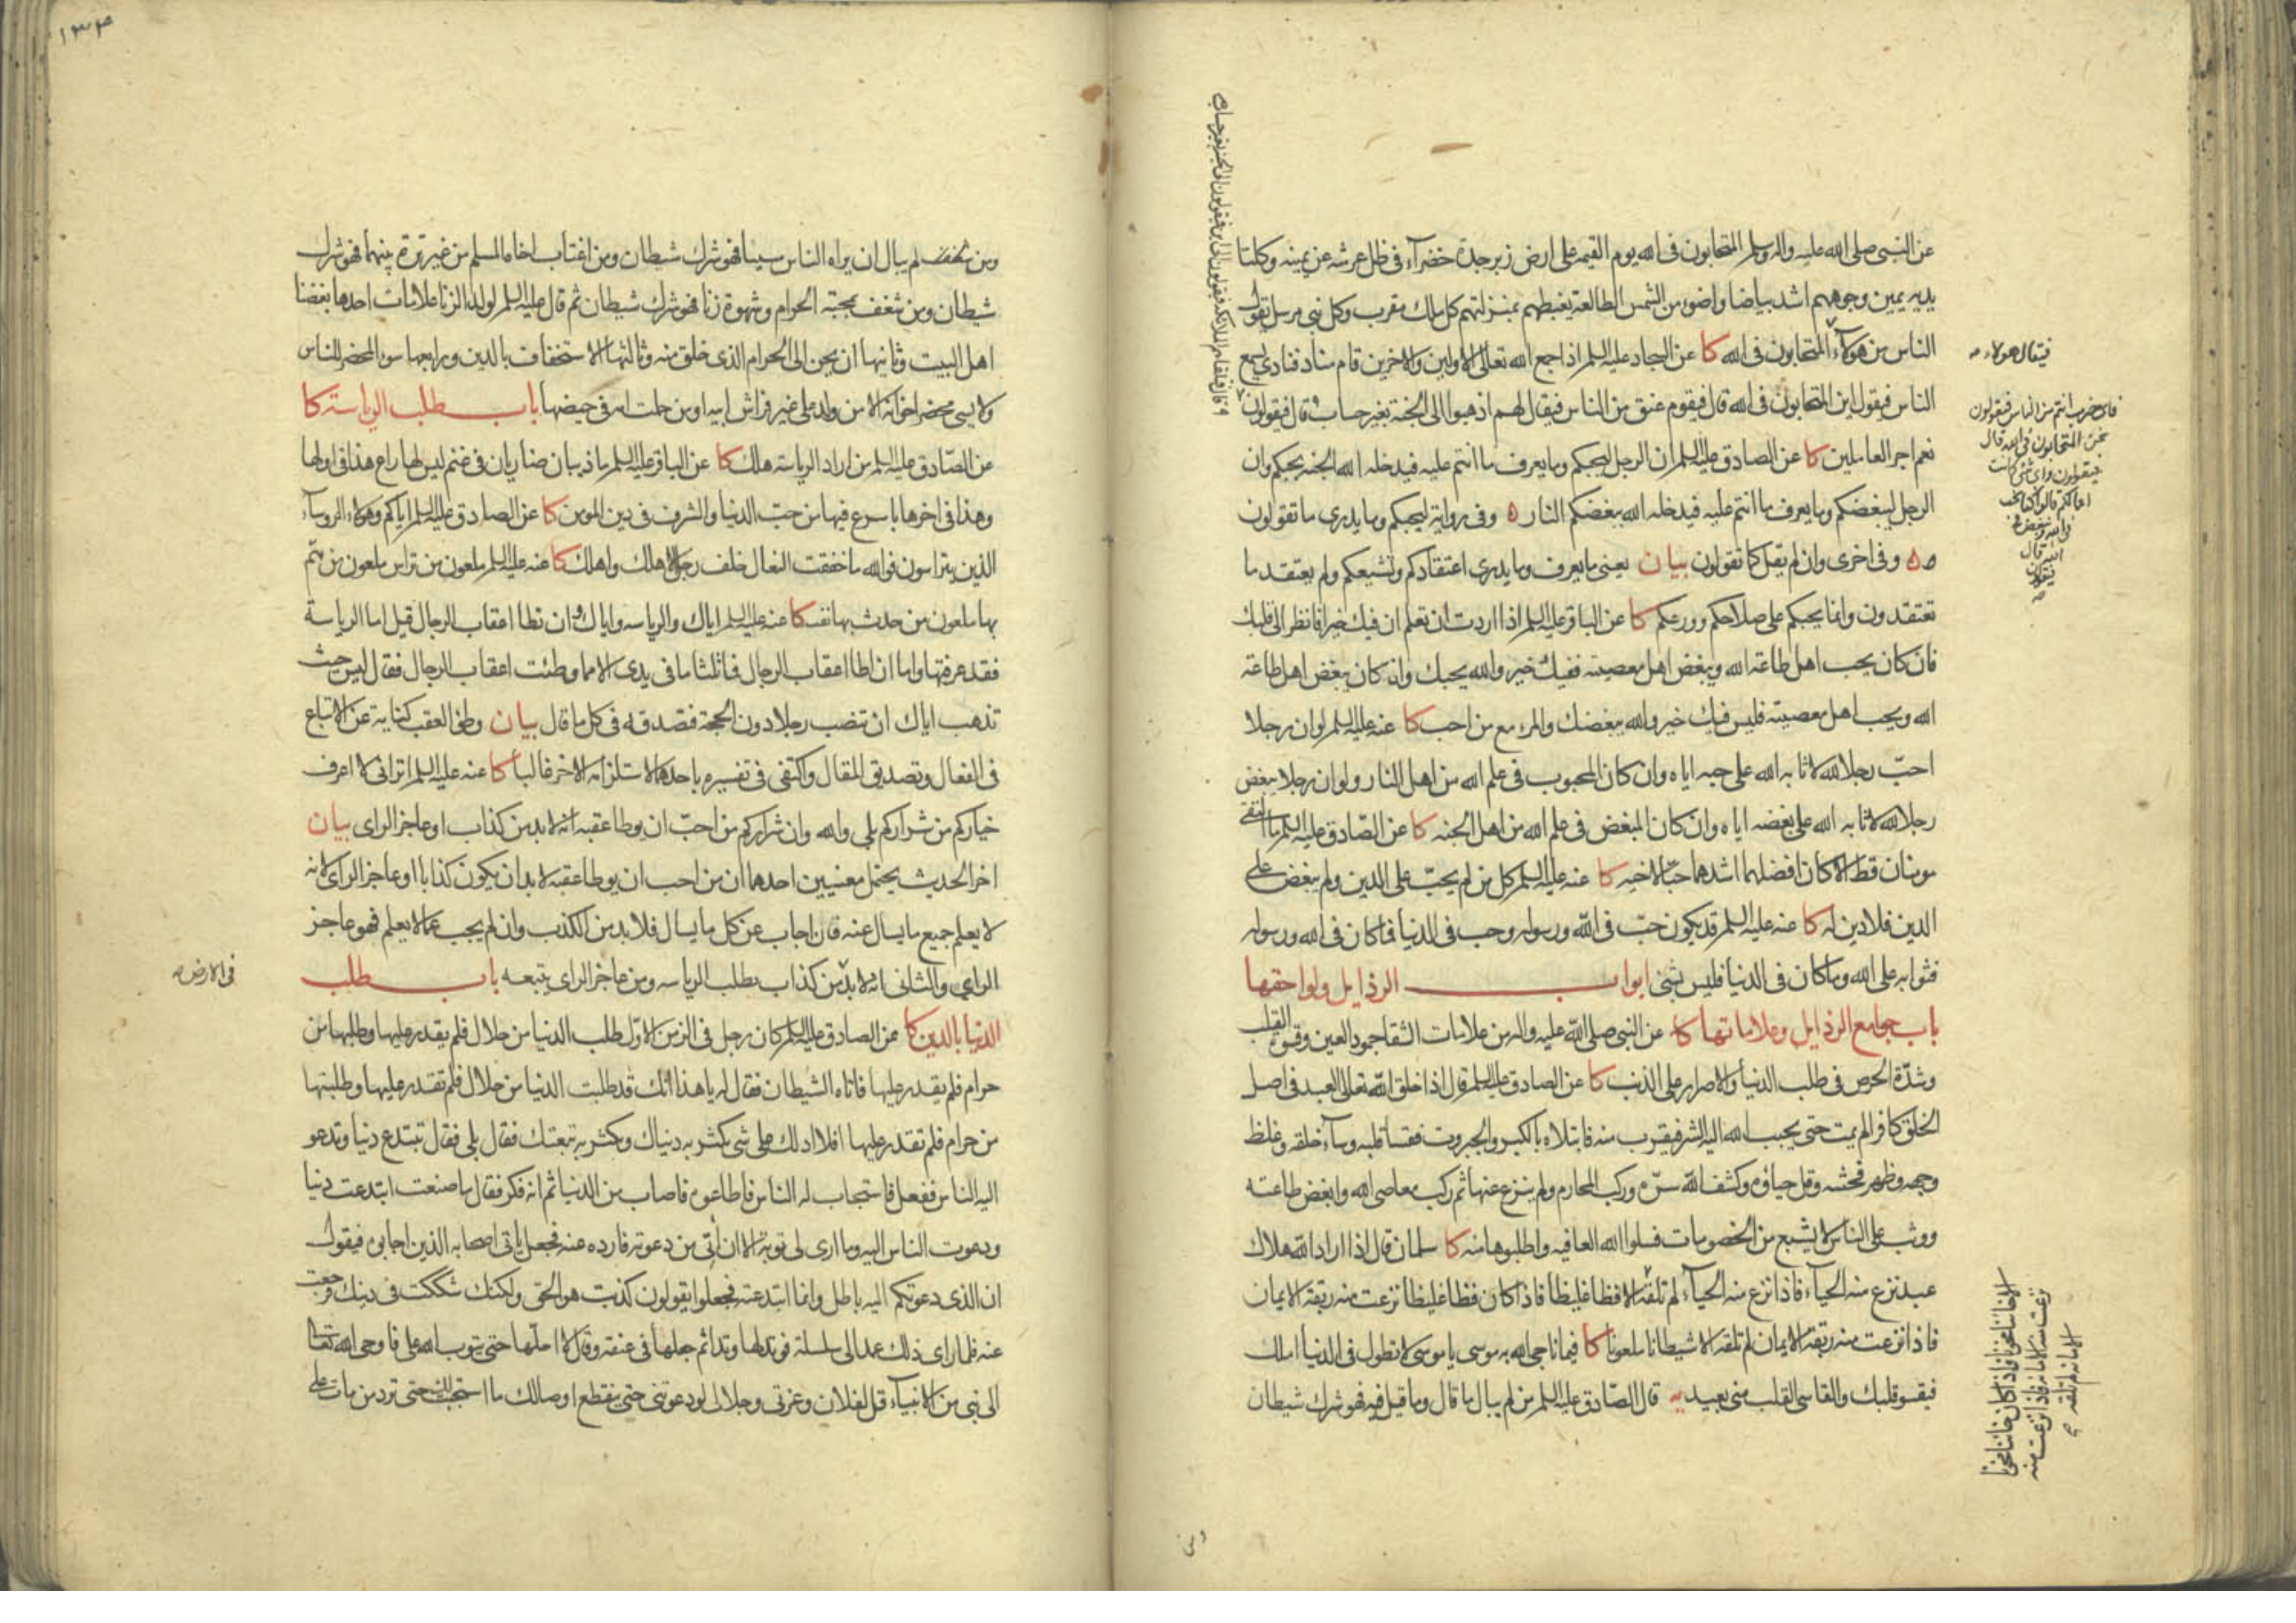 عن النبى صلى الله عليه واله وسلم المتحابون فى الله يوم القيمه على ارض زبرجدة خضرآء فى ظل عرشه عن يمينه وكلتا
يديه يمين وجوههم اشد بياضا واضوء من الشمس الطالعة يغبطهم بمنزلتهم كل ملك مقرب وكل نبى مرسل يقول
الناس من هولآء المتحابون فى الله كا عن السجاد عليه السلم اذا جمع الله تعالى الاولين والاخرين قام مناد فنادى يسمع
الناس فيقول اين المتحابون فى الله قال فيقوم عنق من الناس فيقال لهم اذهبوا الى الجنة بغير حساب قال فيقولون
نعم اجر العاملين كا عن الصادق عليه السلم ان الرجل ليحبكم وما يعرف ما انتم عليه فيدخله الله الجنه بحبكم وان
الرجل ليبغضكم وما يعرف ما انتم عليه فيدخله الله ببغضكم النار ه وفى رواية ليحبكم وما يدرى ما تقولون
ه وفى اخرى وان لم يقل كما تقولون بيان يعنى ما يعرف وما يدرى اعتقادكم وتشيعكم ولم يعتقد ما
تعتقدون وانما يحبكم على صلاحكم وورعكم كا عن الباقر عليه السلم اذا اردت ان تعلم ان فيك خيرا فانظر الى قلبك
فان كان يحب اهل طاعة الله ويبغض اهل معصيته ففيك خير والله يحبك وان كان يبغض اهل طاعة
الله ويحب اهل معصيته فليس فيك خير والله يبغضك والمرء مع من احب كا عنه عليه السلم لو ان رجلا
احبّ رجلا لله لاثابه الله على حبه اياه وان كان المحبوب فى علم الله من اهل النار ولو ان رجلا يبغض
رجلا لله لاثابه الله على بغضه اياه وان كان المبغض فى علم الله من اهل الجنه كا عن الصّادق عليه السلم ما التقى
مومنان قط الا كان افضلهما اشدهما حبّا لاخيه كا عنه عليه السلم كل من لم يحبّ على الدين ولم يبغض على
الدين فلا دين له كا عنه عليه السلم قد يكون حبّ فى الله ورسوله وحب فى الدنيا فما كان فى الله ورسوله
فثوابه على الله وما كان فى الدنيا فليس بشئ ابواب الرذايل ولواحقها
باب جوامع الرذايل وعلاماتها كا عن النبى صلى الله عليه واله من علامات الشقا جمود العين وقسوة القلب
وشدّة الحرص فى طلب الدنيا والاصرار على الذنب كا عن الصادق عليه السلم قال اذا خلق الله تعالى العبد فى اصل
الخلق كافرا لم يمت حتى يحبب الله اليه الشر فيقرب منه فابتلاه بالكبر والجبروت فقسا قلبه وسآء خلقه وغلظ
وجهه وظهر فحشه وقل حياؤه وكشف الله سرّه وركب المحارم ولم ينزع عنها ثم ركب معاصى الله وابغض طاعته
ووثب على الناس لا يشبع من الخصومات فسلوا الله العافيه واطلبوها منه كا سلمان قال اذا اراد الله هلاك
عبد نزع منه الحيآء فاذا نزع منه الحيآء لم تلقه الا فظا غليظا فاذا كان فظا غليظا نزعت منه ربقة الايمان
فاذا نزعت منه ربقة الايمان لم تلقه الا شيطانا ملعونا كا فيما ناجى الله به موسى يا موسى لا تطول فى الدنيا املك
فيقسو قلبك والقاسى القلب منى بعيد يه قال الصّادق عليه السلم من لم يبال ما قال وما قيل فيه فهو شرك شيطان
فيقال هولاء
فاى ضرب انتم من الناس فيقولون
نحن المتحابون فى الله قال
فيقولون واى شئ كانت
اعمالكم قالوا كنا نحب
فى الله ونبغض فى
الله قال
فيقولون
الا خائنا مخونا فاذا كان خائنا مخونا
نزعت منه الامانة فاذا نزعت منه
الامانة لم تلقه
١٣٤
ومن لم يبال ان يراه الناس مسيئا فهو شرك شيطان ومن اغتاب اخاه المسلم من غير ترة بينهما فهو شرك
شيطان ومن شغف بمحبة الحرام وشهوة زنا فهو شرك شيطان ثم قال عليه السلم لولد الزنا علامات احدها بغضنا
اهل البيت وثانيها ان يحن الى الحرام الذى خلق منه وثالثها الاستخفاف بالدين ورابعها سوء المحضر للناس
ولا يسئ محضر اخوانه الا من ولد على غير فراش ابيه او من حملت امه فى حيضها باب طلب الرياسة كا
عن الصّادق عليه السلم من اراد الرياسة هلك كا عن الباقر عليه السلم ما ذيبان ضاريان فى غنم ليس لها راع هذا فى اولها
وهذا فى اخرها باسرع فيها من حبّ الدنيا والشرف فى دين المومن كا عن الصادق عليه السلم اياكم وهولاء الروسآء
الذين يتراسون فوالله ما خفقت النعال خلف رجل الا هلك واهلك كا عنه عليه السلم ملعون من تراس ملعون من همّ
بها ملعون من حدث بها نفسه كا عنه عليه السلم اياك والرياسه واياك وان تطا اعقاب الرجال قيل اما الرياسة
فقد عرفتها واما ان اطا اعقاب الرجال فما ثلثا ما فى يدى الا مما وطئت اعقاب الرجال فقال ليس حيث
تذهب اياك ان تنصب رجلا دون الحجة فتصدقه فى كل ما قال بيان وطى العقب كناية عن الاتباع
فى الفعال وتصديق المقال واكتفى فى تفسيره باحدهما لاستلزامه الاخر غالبا كا عنه عليه السلم اترانى لا اعرف
خياركم من شراركم بلى والله وان شراركم من احبّ ان يوطا عقبه انه لا بد من كذاب او عاجز الراى بيان
اخر الحديث يحتمل معنيين احدهما ان من احب ان يوطا عقبه لا بد ان يكون كذابا او عاجز الراى لانه
لا يعلم جميع ما يسال عنه فان اجاب عن كل ما يسال فلا بد من الكذب وان لم يجب عما لا يعلم فهو عاجز
الراي والثانى انه لا بدّ من كذاب يطلب الرياسه ومن عاجز الراى يتبعه باب طلب
الدنيا بالدين كا عن الصادق عليه السلم كان رجل فى الزمن الاوّل طلب الدنيا من حلال فلم يقدر عليها وطلبها من
حرام فلم يقدر عليها فاتاه الشيطان فقال له يا هذا انك قد طلبت الدنيا من حلال فلم تقدر عليها وطلبتها
من حرام فلم تقدر عليها افلا ادلك على شى يكثر به دنياك ويكثر به تبعتك فقال بلى فقال تبتدع دينا وتدعو
اليه الناس ففعل فاستجاب له الناس فاطاعوه فاصاب من الدنيا ثم انه فكر فقال ما صنعت ابتدعت دينا
ودعوت الناس اليه وما ارى لى توبة الا ان اتى من دعوته فارده عنه فجعل ياتى اصحابه الذين اجابوه فيقول
ان الذى دعوتكم اليه باطل وانما ابتدعته فجعلوا يقولون كذبت هو الحق ولكنك شككت فى دينك فرجعت
عنه فلما راى ذلك عمد الى سلسلة فوتد لها وتدا ثم جعلها فى عنقه وقال لا احلّها حتى يتوب الله على فاوحى الله تعالى
الى نبى من الانبيآء قل لفلان وعزتى وجلالى لو دعوتنى حتى ينقطع اوصالك ما استجبت لك حتى ترد من مات على
فى الارض